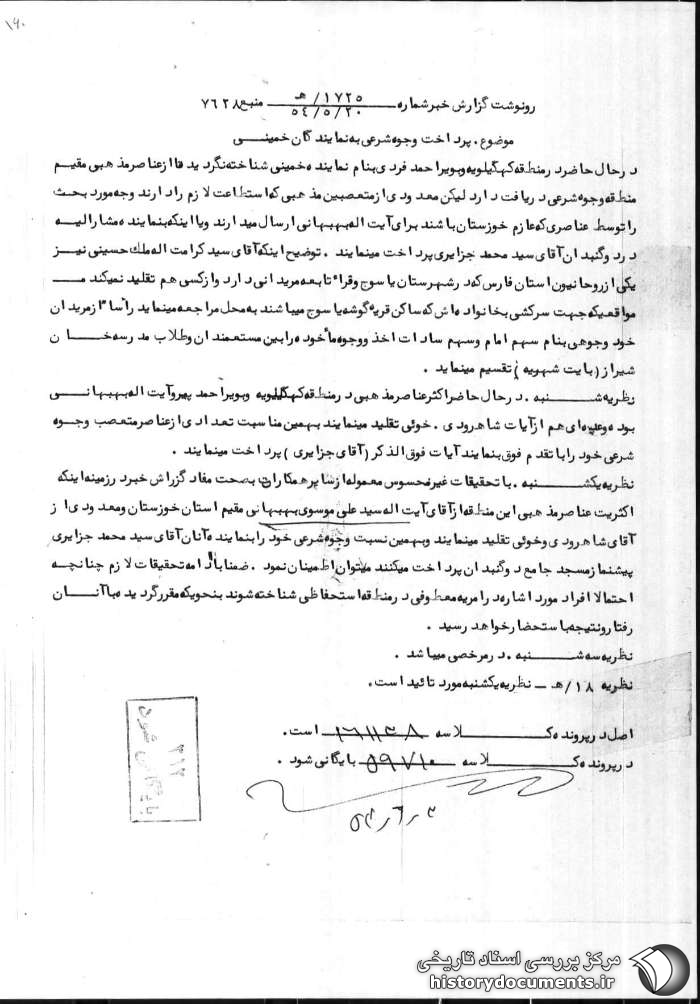 ۱۶۰
رونوشت گزارش خبر شماره ۱۷۲۵/هـ منبع ۷۶۲۸
۵۴/۵/۲۰
موضوع . پرداخت وجوه شرعی به نمایندگان خمینی
در حال حاضر در منطقه کهگیلویه و بویراحمد فردی بنام نماینده خمینی شناخته نگردیده تا از عناصر مذهبی مقیم
منطقه وجوه شرعی دریافت دارد لیکن معدودی از متعصبین مذهبی که استطاعت لازم را دارند وجه مورد بحث
را توسط عناصری که عازم خوزستان باشند برای آیت اله بهبهانی ارسال میدارند ویا اینکه بنماینده مشارالیه
در دوگنبدان آقای سید محمد جزایری پرداخت مینمایند . توضیح اینکه آقای سید کرامت اله ملک حسینی نیز
یکی از روحانیون استان فارس که در شهرستان یاسوج وقراء تابعه مریدانی دارد واز کسی هم تقلید نمیکند
مواقعیکه جهت سرکشی بخانواده اش که ساکن قریه گوشه یاسوج میباشند به محل مراجعه مینماید رأسا از مریدان
خود وجوهی بنام سهم امام وسهم سادات اخذ ووجوه مأخوذه را بین مستمندان وطلاب مدرسه خان
شیراز (بابت شهریه) تقسیم مینماید .
نظریه شنبه . در حال حاضر اکثر عناصر مذهبی در منطقه کهگیلویه وبویراحمد پیرو آیت اله بهبهانی
بوده وعده ای هم از آیات شاهرودی . خوئی تقلید مینمایند بهمین مناسبت تعدادی از عناصر متعصب وجوه
شرعی خود را با تقدم فوق بنمایند آیات فوق الذکر (آقای جزایری) پرداخت مینمایند .
نظریه یکشنبه . با تحقیقات غیر محسوس معموله از سایر همکاران بصحت مفاد گزارش خبر در زمینه اینکه
اکثریت عناصر مذهبی این منطقه از آقای آیت اله سید علی موسوی بهبهانی مقیم استان خوزستان ومعدودی از
آقای شاهرودی وخوئی تقلید مینمایند وبهمین نسبت وجوه شرعی خود را بنماینده آنان آقای سید محمد جزایری
پیشنماز مسجد جامع دوگنبدان پرداخت میکنند میتوان اطمینان نمود . ضمنا با ادامه تحقیقات لازم چنانچه
احتمالا افراد مورد اشاره در امریه معطوفی در منطقه استحفاظی شناخته شوند بنحویکه مقرر گردیده با آنان
رفتار ونتیجه باستحضار خواهد رسید .
نظریه سه شنبه . در مرخصی میباشد .
نظریه ۱۸/هـ - نظریه یکشنبه مورد تائید است .
اصل در پرونده کلاسه است .
در پرونده کلاسه بایگانی شود .
۳۱۲
بایگانی شود
مرکز بررسی اسناد تاریخی
historydocuments.ir